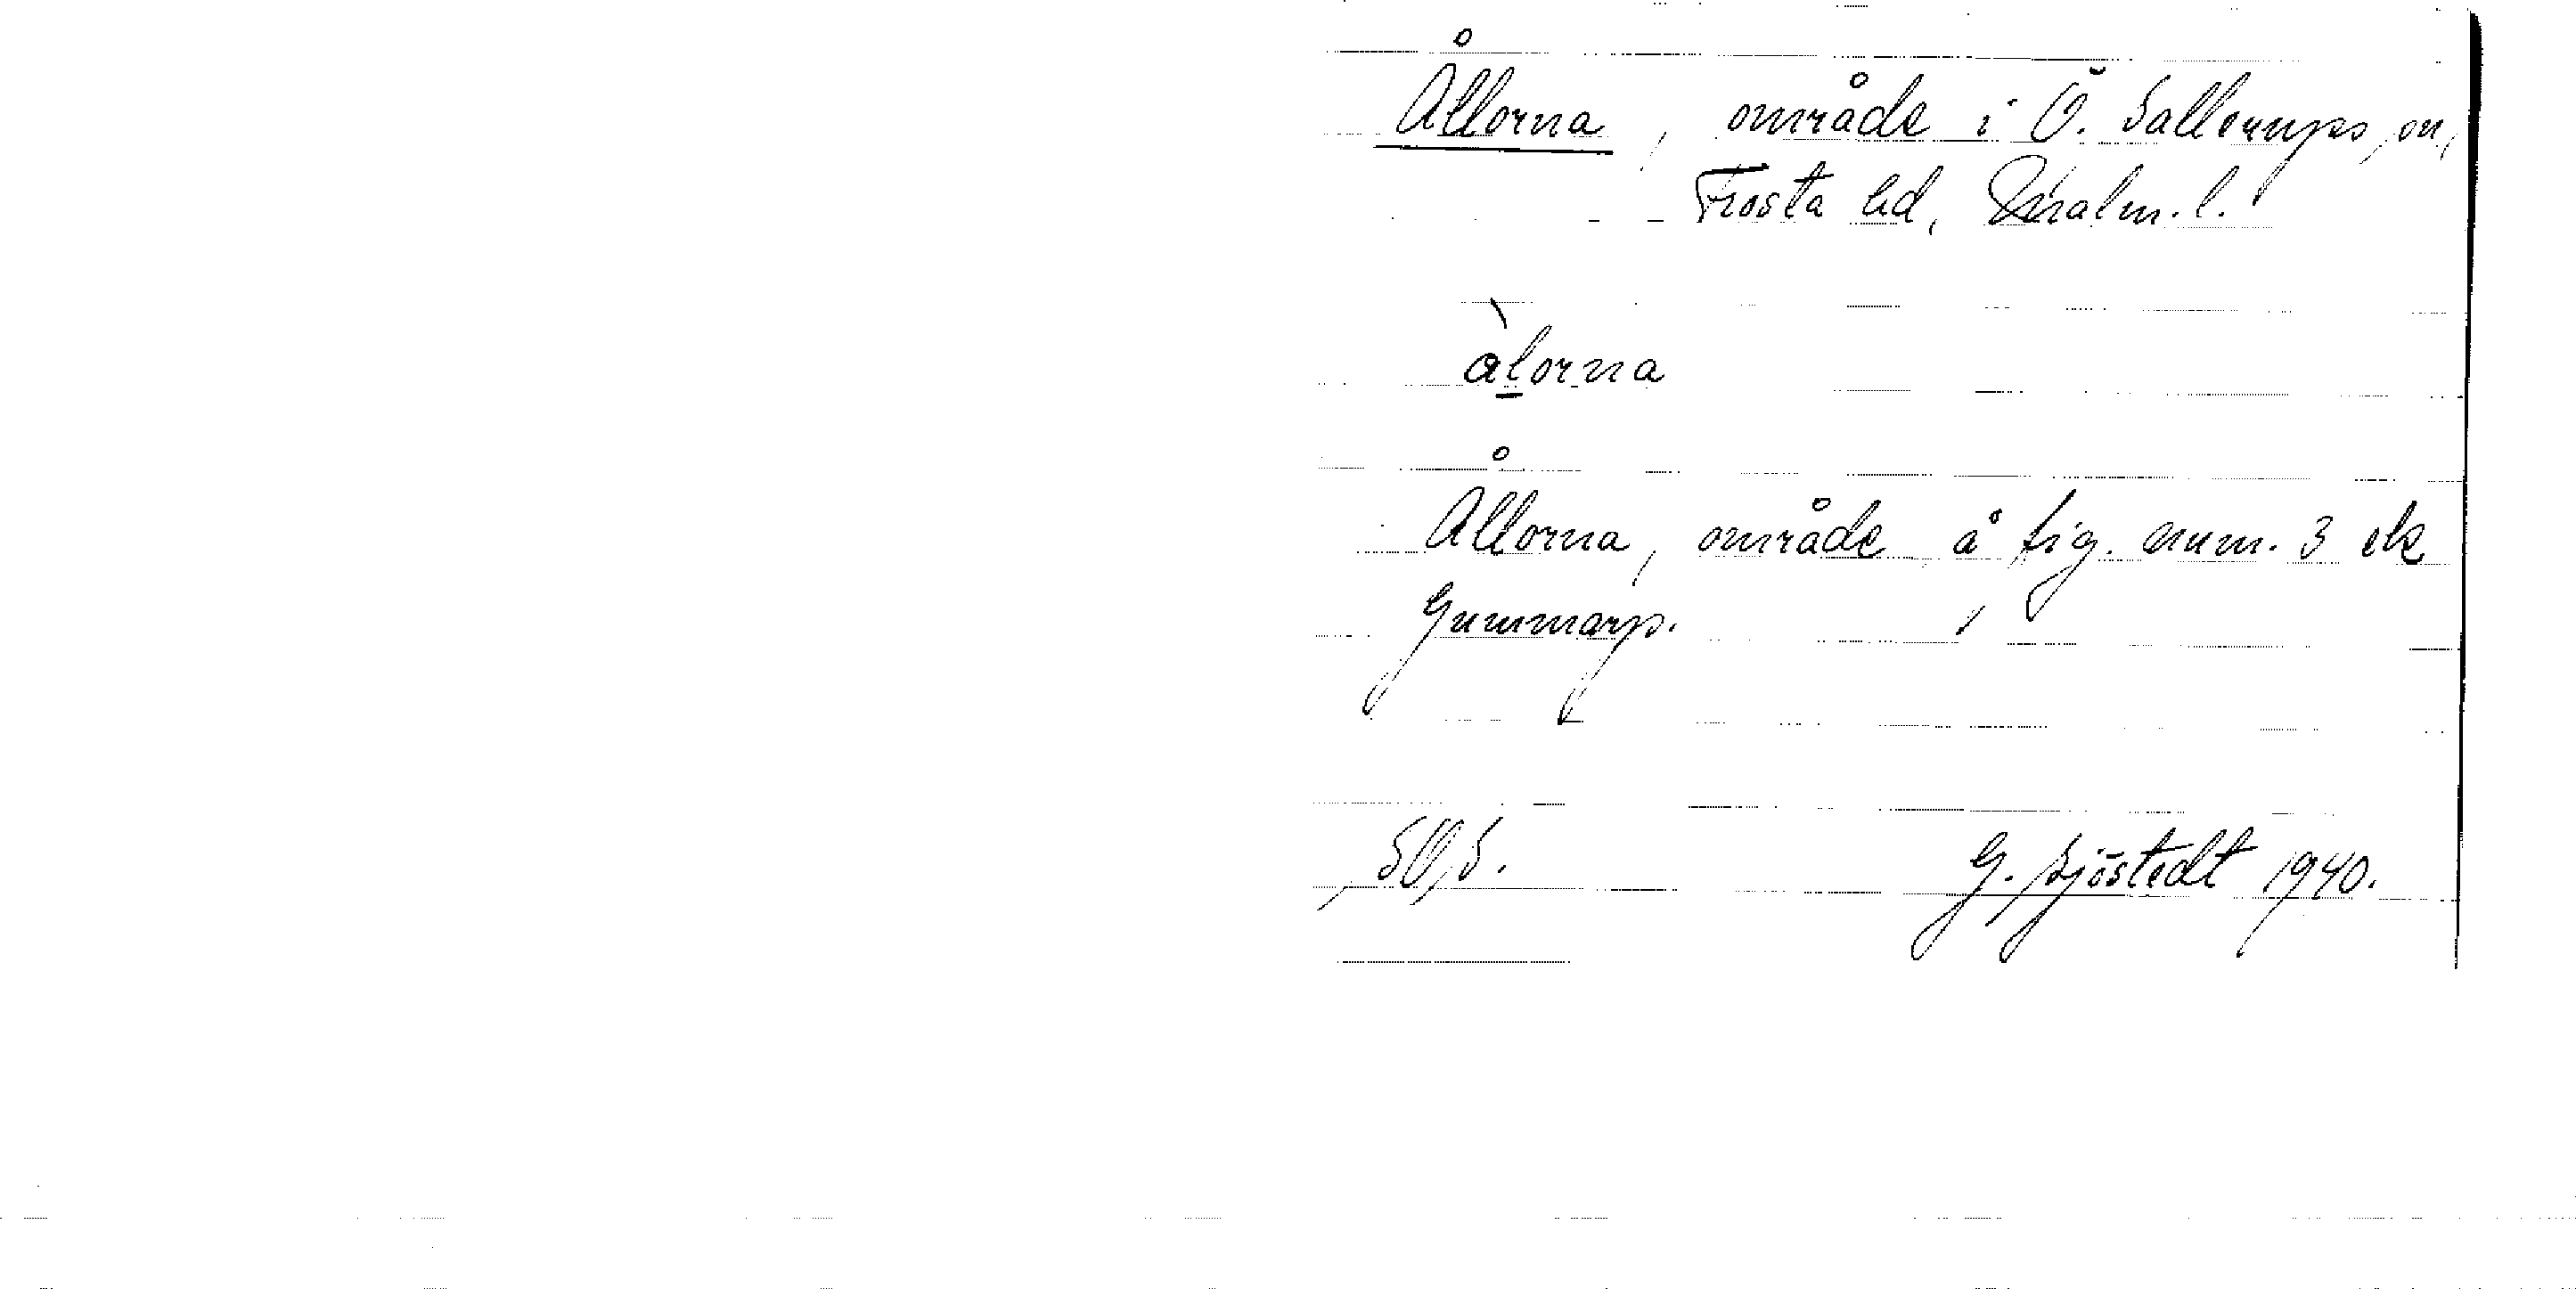 Ållorna, område i Ö. Sallerups sn,
Frosta hd, Malm. l.
àlorna
Ållorna, område å fig. num. 3 ek
Gummarp.
SOS.
G. Sjöstedt 1940.